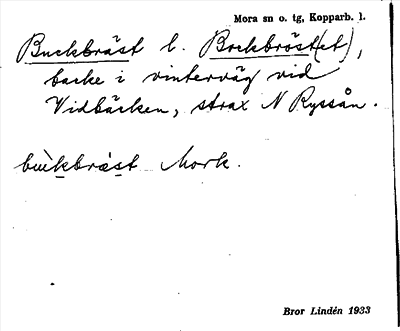 Mora sn o. tg, Kopparb. l.
Buckbräst l. Bockbröst(et),
backe i vinterväg vid
Vidbäcken, strax N Ryssån.
bùkbräst Mork.
Bror Lindén 1933